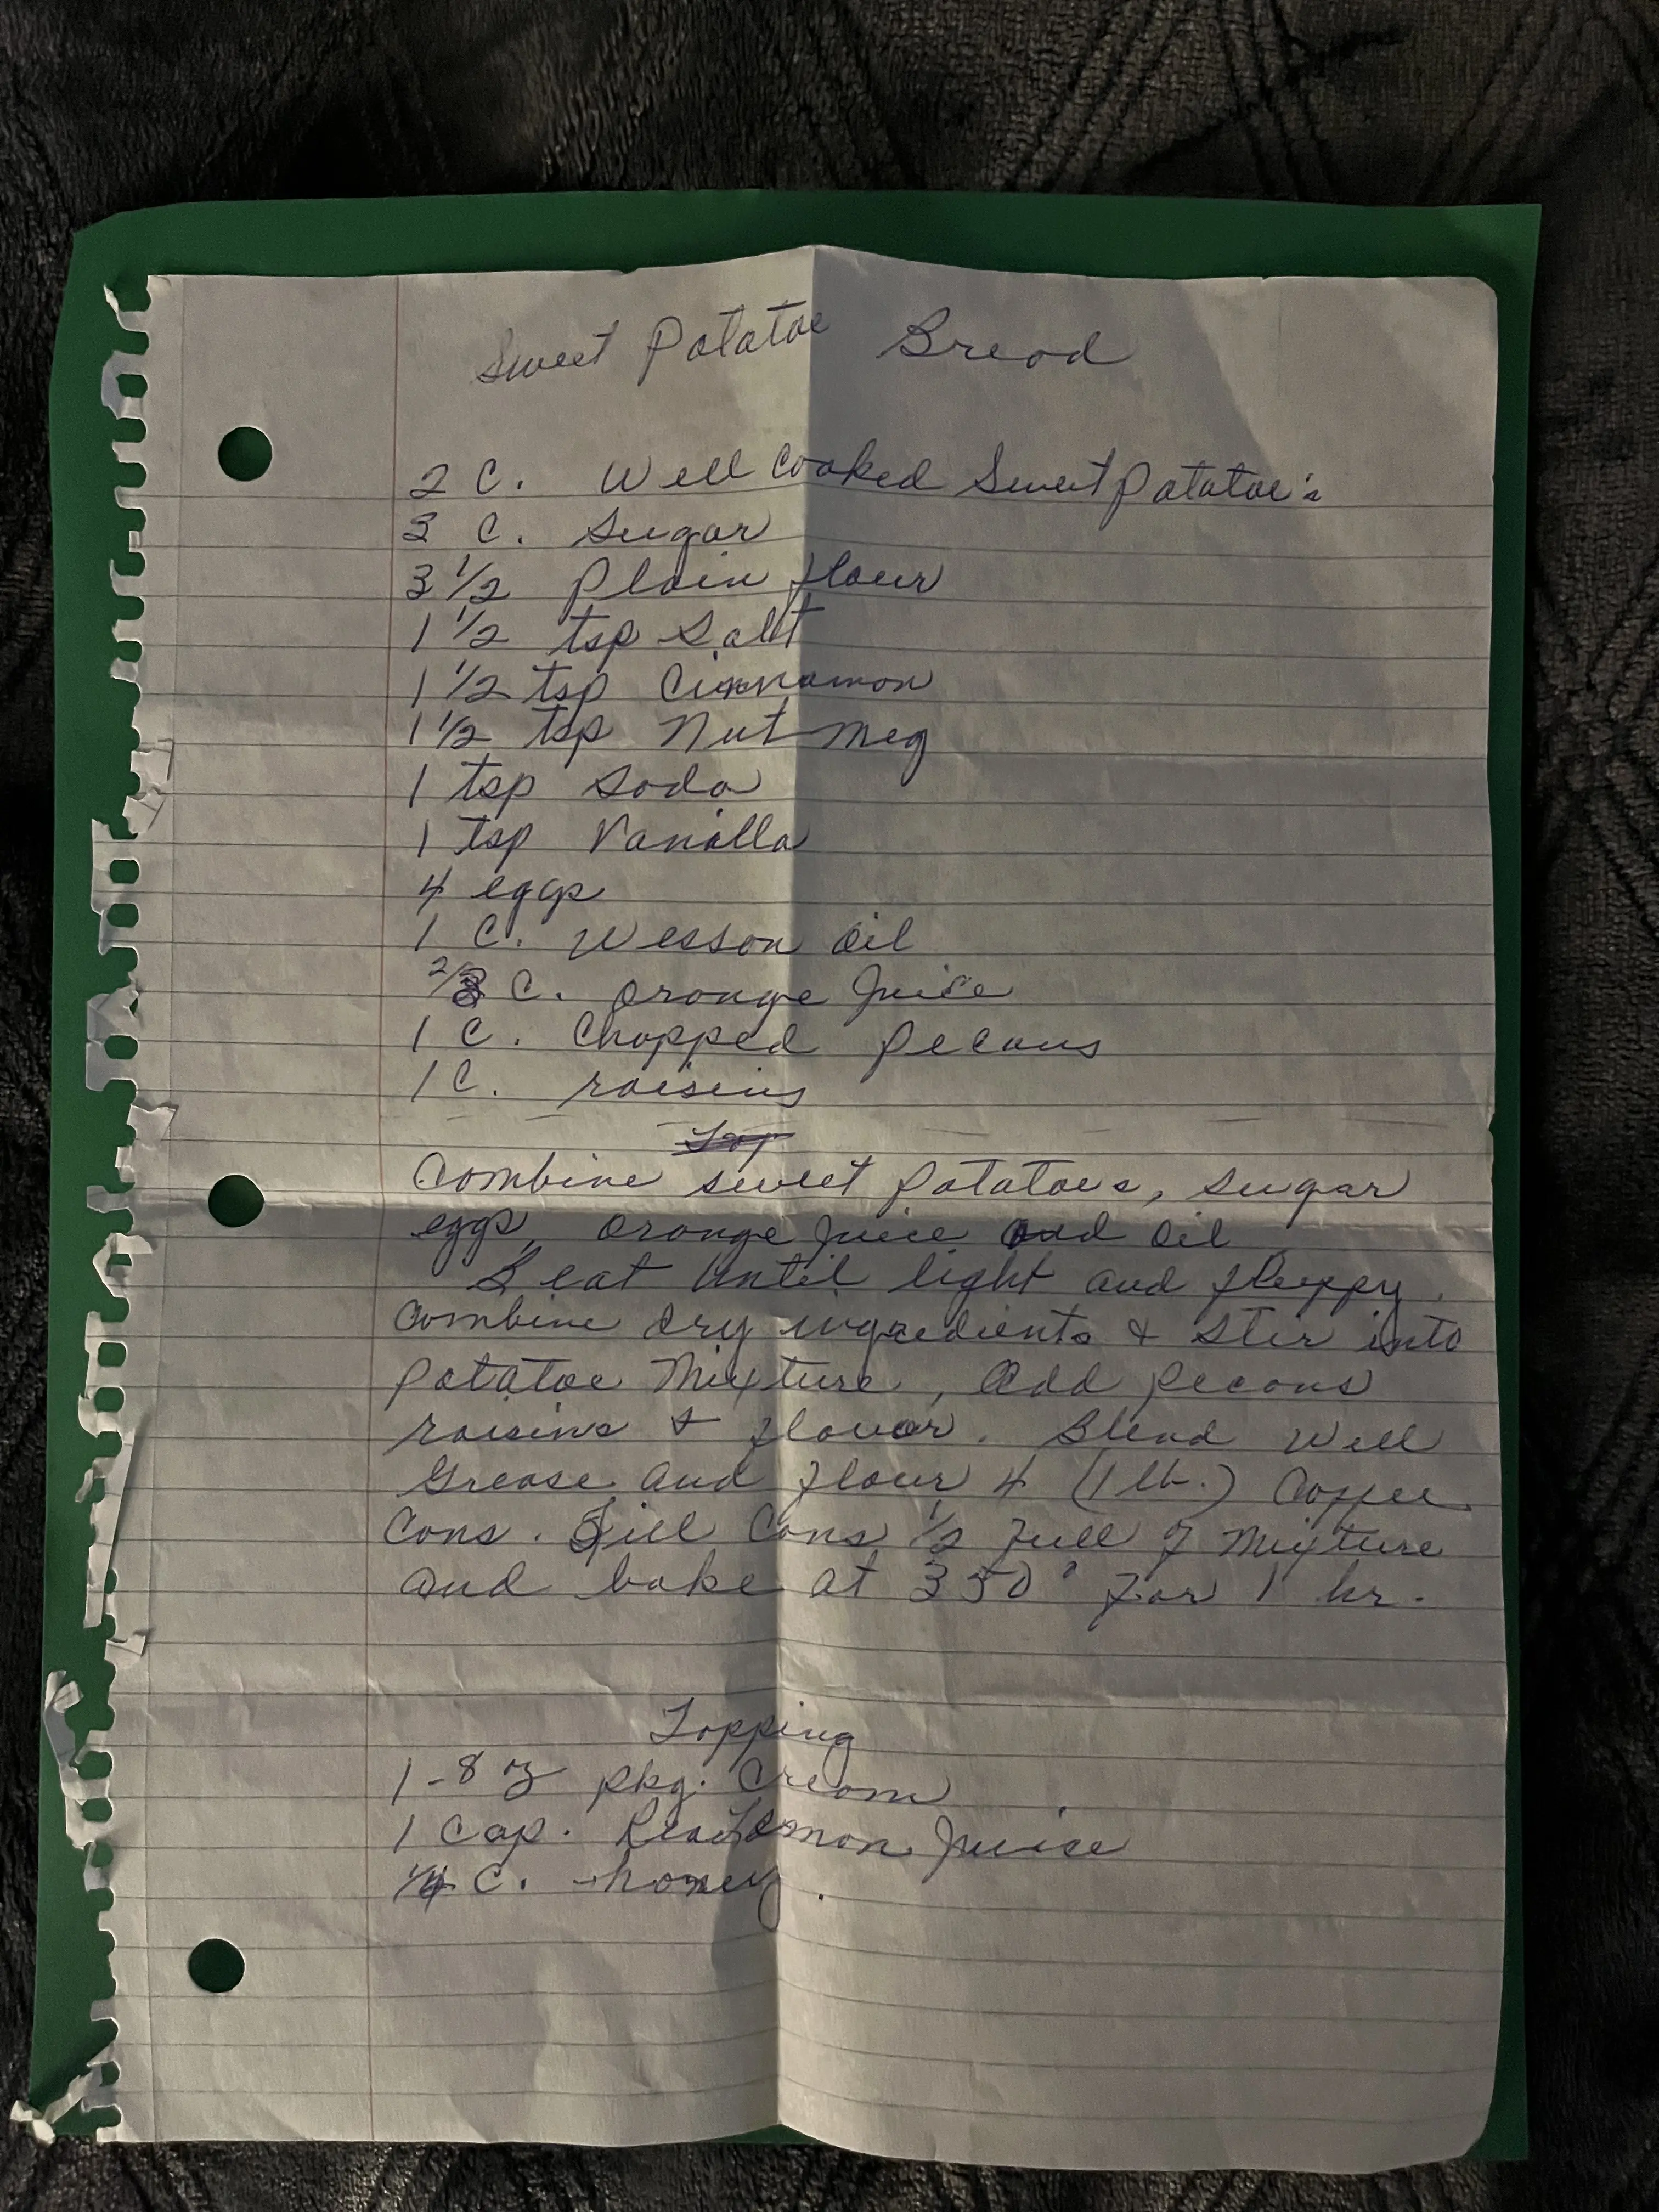 Sweet Potatoe Bread
2 C. Well Cooked Sweet Potatoe's
3 C. Sugar
3 1/2 Plain flour
1 1/2 tsp Salt
1 1/2 tsp Cinnamon
1 1/2 tsp Nut meg
1 tsp Soda
1 tsp Vanilla
4 eggs
1 C. Wesson Oil
2/3 C. Orange Juice
1 C. Chopped Pecans
1 C. raisins
Top
Combine sweet potatoes, sugar
eggs, orange juice and oil
Beat until light and fluffy.
Combine dry ingredients & stir into
Potatoe Mixture, Add pecans
raisins & flavor. Blend Well
Grease and flour 4 (1 lb.) Coffee
Cans. Fill Cans 1/2 full of Mixture
and bake at 350° for 1 hr.
Topping
1-8 oz pkg. Cream
1 Cap. RealLemon Juice
1/4 C. honey.